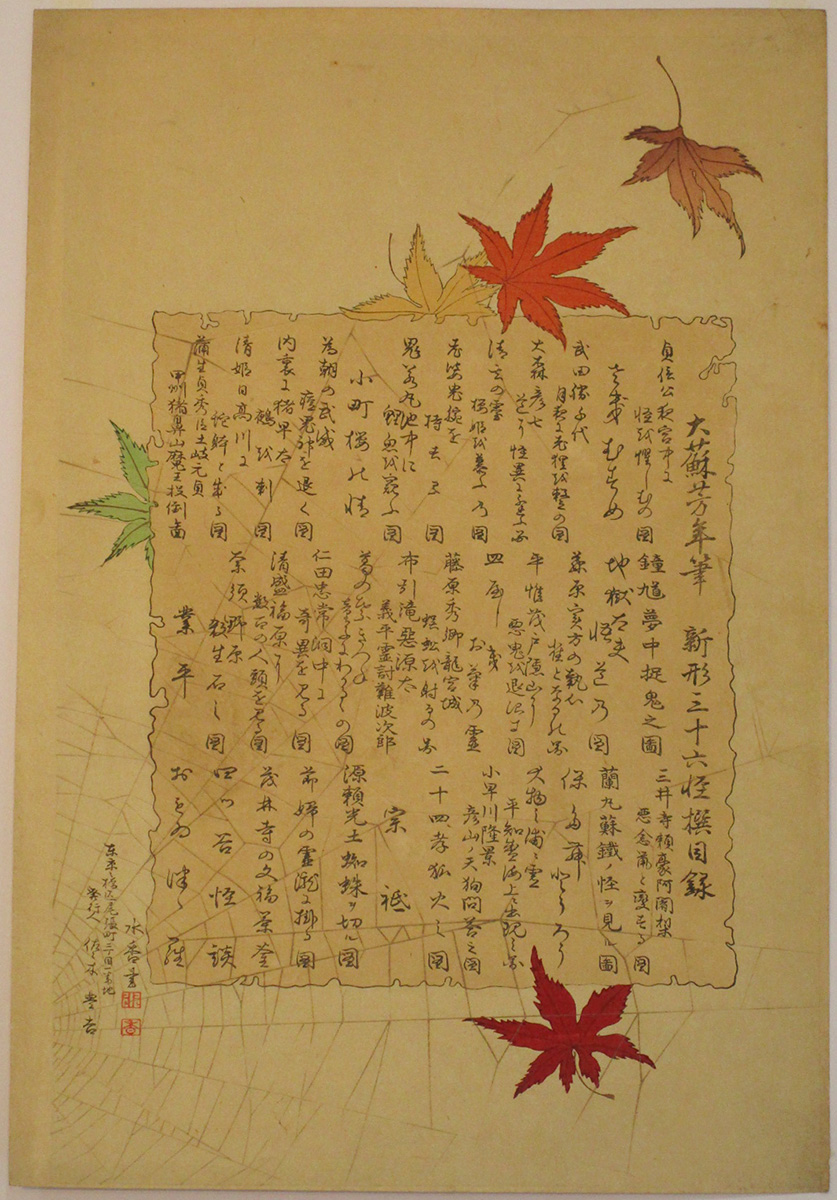 大蘇芳年筆 新形三十六怪撰目録
貞信公夜宮中に
怪を懼しむの図
さぎむすめ
武田勝千代
月夜に老狸を撃の図
大森彦七
道に怪異に逢ふ図
清玄の霊
桜姫を慕ふの図
老婆鬼腕を
持去る図
鬼若丸池中に
鯉魚を窺ふ図
小町桜の精
為朝の武威
痘鬼神を退く図
内裏に猪早太
鵺を刺図
清姫日高川に
蛇躰と成る図
蒲生貞秀臣土岐元貞
甲州猪鼻山魔王投倒図
鐘馗夢中捉鬼之圖
地獄太夫
悟道の図
藤原実方の執心
雀となるの図
平惟茂戸隠山に
悪鬼を退治す図
皿やしき
お菊の霊
藤原秀郷龍宮城
蜈蚣を射るの図
布引滝悪源太
義平霊討難波次郎
葛の葉きつね
童子にわかるゝの図
仁田忠常洞中に
奇異を見る図
清盛福原に
数百の人頭を見る図
奈須野原
殺生石之図
業平
三井寺頼豪阿闍梨
悪念鼠と変ずる図
蘭丸蘇鉄ノ怪ヲ見ル圖
ほたむとうろう
大物之浦ニ霊
平知盛海上に出現之図
小早川隆景
彦山ノ天狗問答之図
二十四孝狐火之図
宗祗
源頼光土蜘蛛ヲ切ル図
節婦の霊滝に掛る図
茂林寺の文福茶釜
四ツ谷怪談
おもゐつゝら
水香書
東京橋区尾張町二丁目一番地
発行人 佐々木豊吉